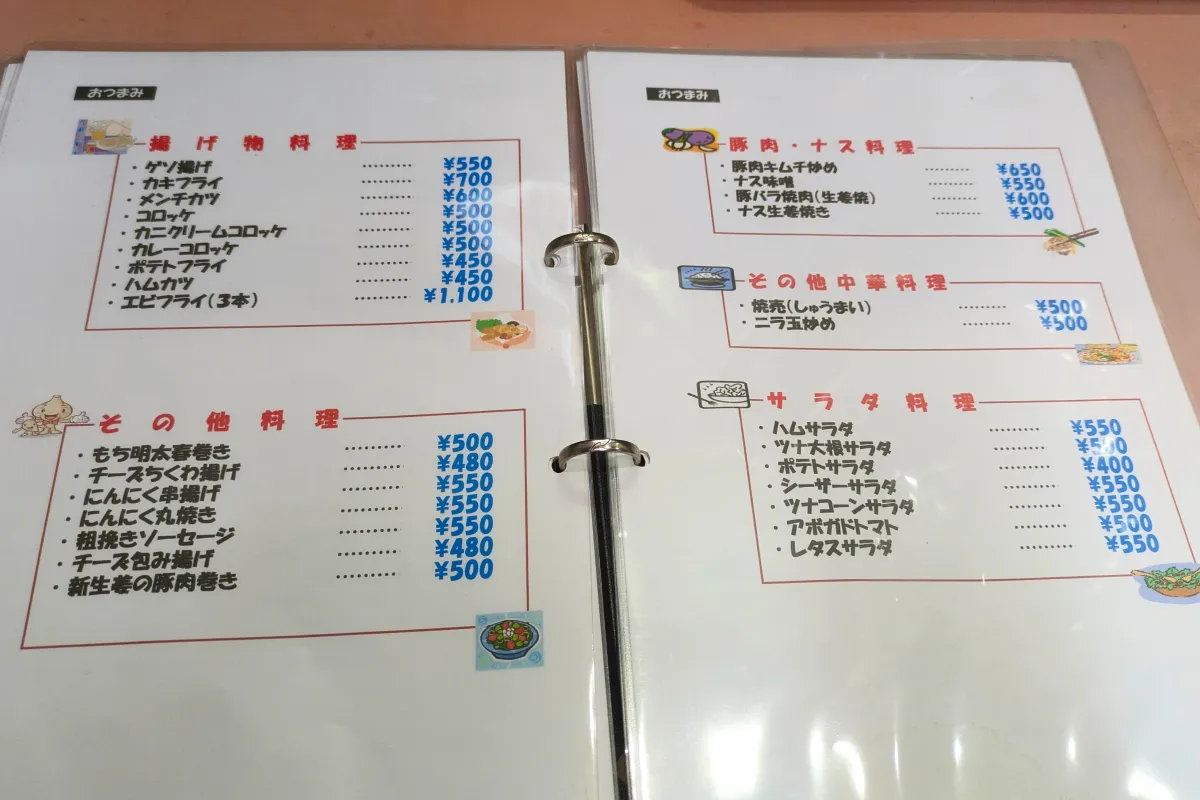 おつまみ
揚げ物料理
・ゲソ揚げ ………… ¥550
・カキフライ ………… ¥700
・メンチカツ ………… ¥600
・コロッケ ………… ¥500
・カニクリームコロッケ ………… ¥500
・カレーコロッケ ………… ¥500
・ポテトフライ ………… ¥450
・ハムカツ ………… ¥450
・エビフライ(3本) ………… ¥1,100
その他料理
・もち明太春巻き ………… ¥500
・チーズちくわ揚げ ………… ¥480
・にんにく串揚げ ………… ¥550
・にんにく丸焼き ………… ¥550
・粗挽きソーセージ ………… ¥550
・チーズ包み揚げ ………… ¥480
・新生姜の豚肉巻き ………… ¥500
おつまみ
豚肉・ナス料理
・豚肉キムチ炒め ………… ¥650
・ナス味噌 ………… ¥550
・豚バラ焼肉(生姜焼) ………… ¥600
・ナス生姜焼き ………… ¥500
その他中華料理
・焼売(しゅうまい) ………… ¥500
・ニラ玉炒め ………… ¥500
サラダ料理
・ハムサラダ ………… ¥550
・ツナ大根サラダ ………… ¥500
・ポテトサラダ ………… ¥400
・シーザーサラダ ………… ¥550
・ツナコーンサラダ ………… ¥550
・アボガドトマト ………… ¥500
・レタスサラダ ………… ¥550